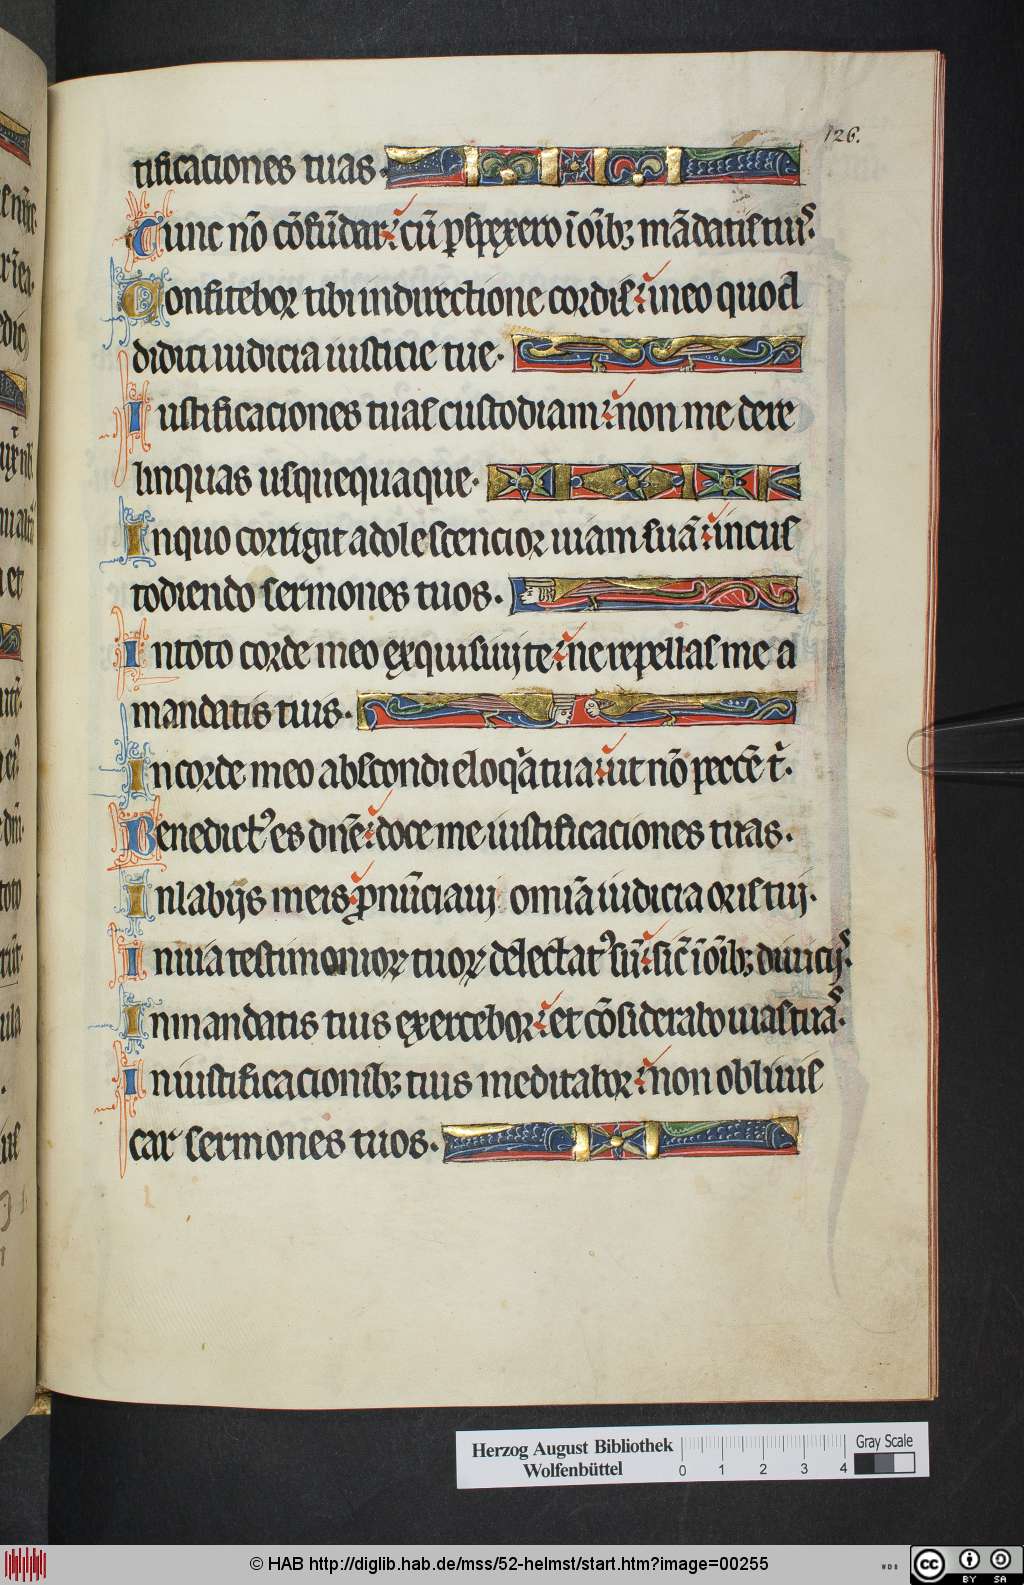 126.
tificaciones tuas.
Tunc nō cōfūdar: cū pspexero ī oībꝫ mādatis tuis.
Confitebor tibi in directione cordis: in eo quod
didici iudicia iusticie tue.
Iustificaciones tuas custodiam: non me dere
linquas usquequaque.
In quo corrigit adolescencior uiam suā: in cus
todiendo sermones tuos.
In toto corde meo exquisiuij te: ne repellas me a
mandatis tuis.
In corde meo abscondi eloqa tua: ut nō peccē t.
Benedictꝰ es dnē: doce me iustificaciones tuas.
In labijs meis: pnūciaui omīa iudicia oris tuj.
In uia testimoniorꝝ tuorꝝ delectatꝰ sū: sic̄ ī oībꝫ diuicijs.
In mandatis tuis exercebor: et cōsiderabo uias tuas.
In iustificacionibꝫ tuis meditabor: non obliuis
car sermones tuos.
Herzog August Bibliothek
Wolfenbüttel
0 1 2 3 4
Gray Scale
© HAB http://diglib.hab.de/mss/52-helmst/start.htm?image=00255
WDB
cc BY SA